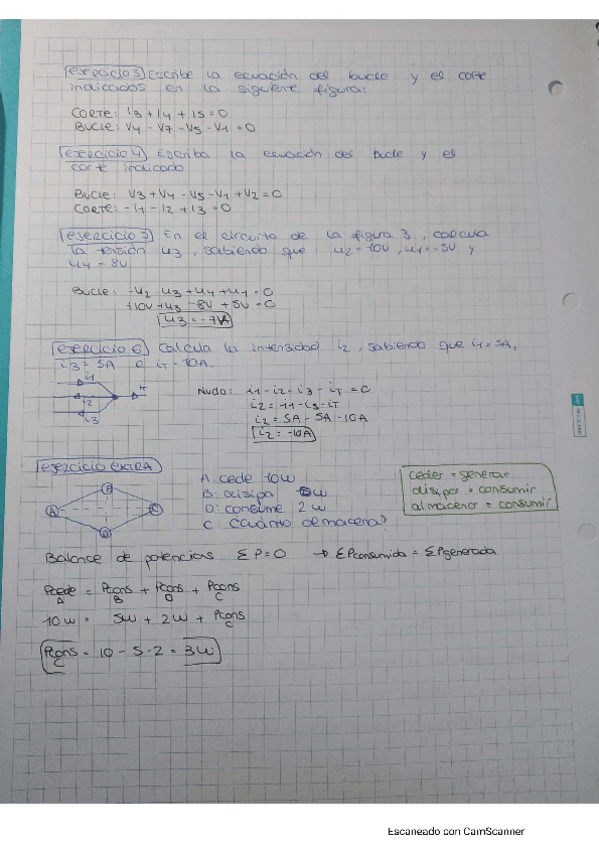 ejercicio 3) Escribe la ecuación del bucle y el corte
indicados en la siguiente figura:
CORTE: i3 + i4 + i5 = 0
BUCLE: V4 - V7 - V5 - V1 = 0
ejercicio 4) Escriba la ecuación del bucle y el
corte indicado
BUCLE: V3 + V4 - V5 - V1 + V2 = 0
CORTE: - i1 - i2 + i3 = 0
ejercicio 5) En el circuito de la figura 3, calcula
la tensión u3, sabiendo que u2 = -10V, u1 = -5V y
u4 = 8V
Bucle: -u2 - u3 + u4 + u1 = 0
+10V + u3 - 8V + 5V = 0
u3 = -7V
ejercicio 6) Calcula la intensidad i2, sabiendo que i1 = 5A,
i3 = 5A e iT = 10A.
i1
i2
iT
i3
Nudo: i1 - i2 - i3 - iT = 0
i2 = i1 - i3 - iT
i2 = 5A - 5A - 10A
i2 = -10A
ejercicio extra
A B C D
A: cede 10W
B: disipa 5W
D: consume 2W
C: cuánto almacena?
ceder = generar
disipar = consumir
almacenar = consumir
Balance de potencias ΣP = 0 → ΣPconsumida = ΣPgenerada
Pcede A = Pcons B + Pcons D + Pcons C
10W = 5W + 2W + Pcons C
Pcons C = 10 - 5 - 2 = 3W
Escaneado con CamScanner